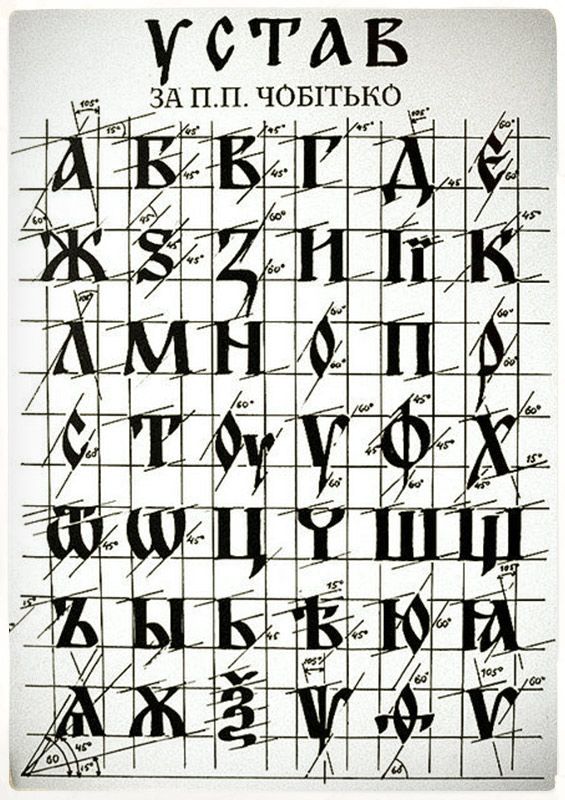 УСТАВ
ЗА П.П. ЧОБІТЬКО
105° 15° 45° 45° 45° 105° 60°
А Б В Г Д Є
45° 45° 45 60°
60° 45° 60° 45°
Ж Ѕ З И Ії К
45 45° 60°
105° 60° 60°
Л М Н О П Р
60° 60°
60° 60° 45° 60°
С Т Оу У Ф Х
60° 60° 45 45° 60° 45° 15°
Ѿ Ѡ Ц Ч Ш Щ
45° 45°
15° 15° 105°
Ъ Ы Ь Ѣ Ю Ꙗ
45 45° 60°
105° 60° 105° 60°
Ѧ Ѫ Ѯ Ѱ Ѳ Ѵ
60 45° 15° 60°